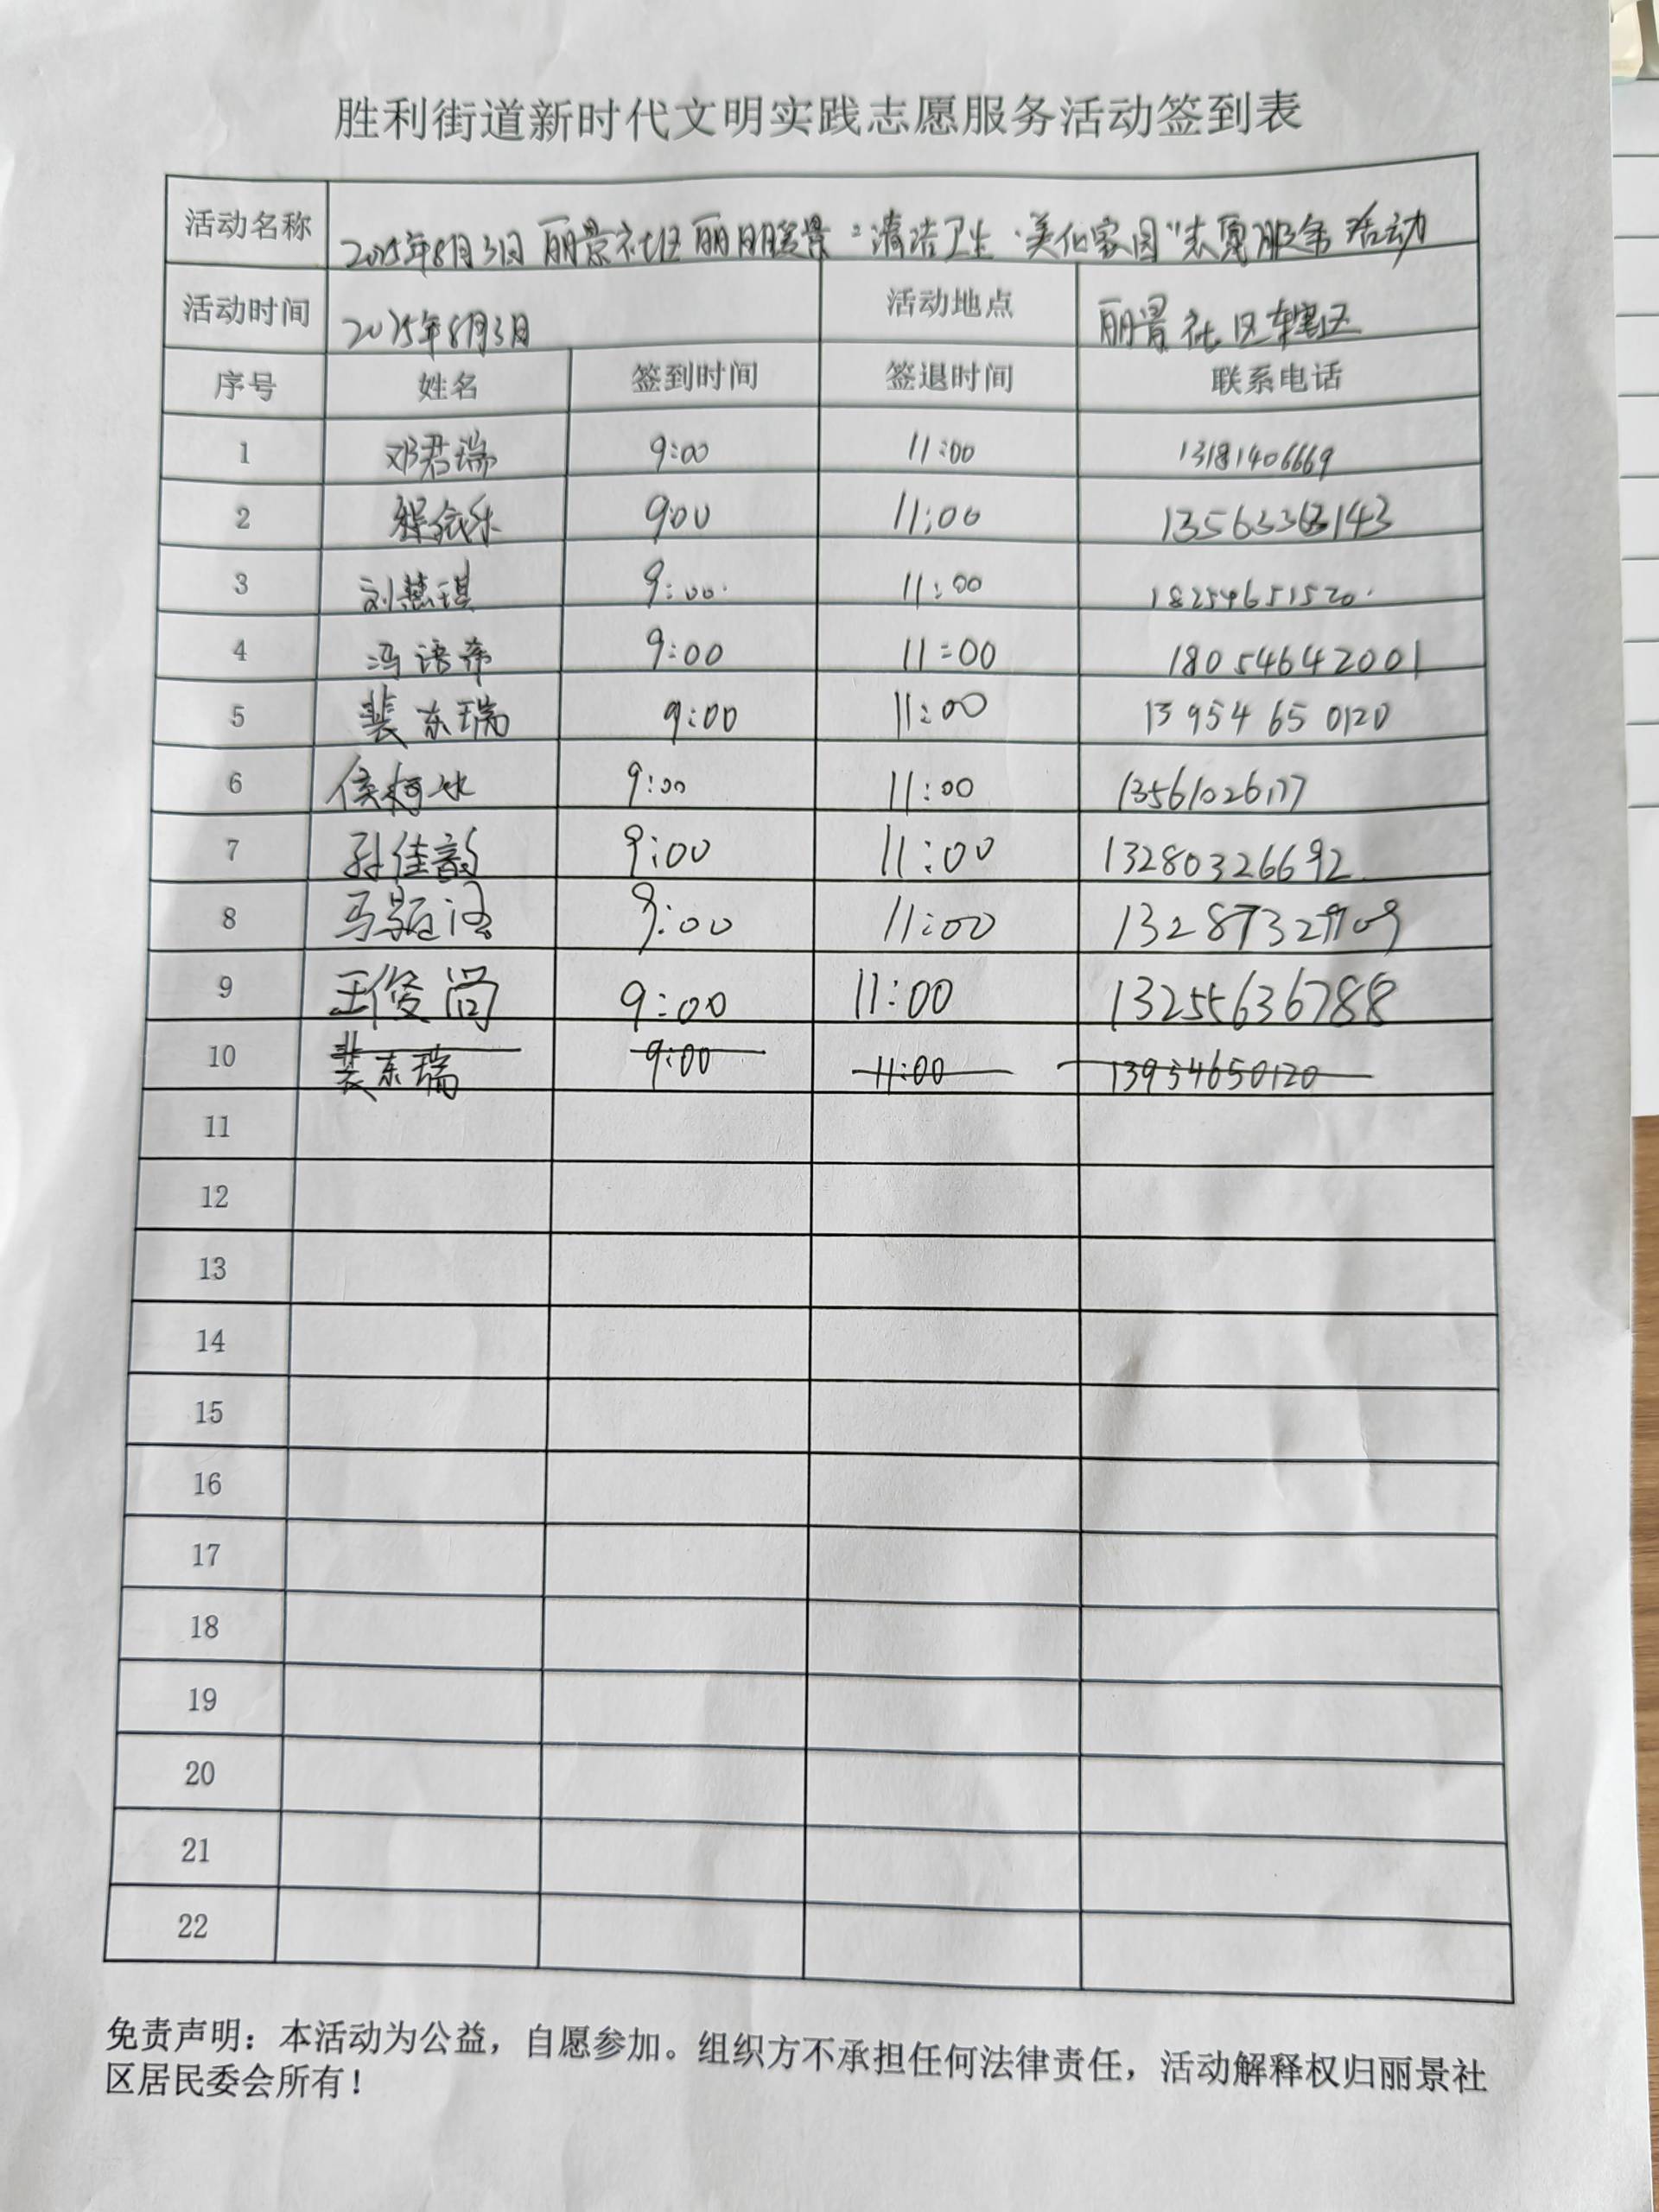 胜利街道新时代文明实践志愿服务活动签到表
活动名称 2025年8月3日 丽景社区 丽朋暖景 "清洁卫生·美化家园"志愿服务活动
活动时间 2025年8月3日 活动地点 丽景社区辖区
序号 姓名 签到时间 签退时间 联系电话
1 邓君瑞 9:00 11:00 13181406669
2 程依乐 9:00 11:00
3 刘慧琪 9:00 11:00 18254651520
4 冯语希 9:00 11:00 18054642001
5 裴东瑞 9:00 11:00 13954650120
6 侯柯冰 9:00 11:00
7 孙佳韵 9:00 11:00 13280326692
8 9:00 11:00
9 王俊尚 9:00 11:00 13255636788
10 裴东瑞 9:00 11:00 13954650120
11
12
13
14
15
16
17
18
19
20
21
22
免责声明：本活动为公益，自愿参加。组织方不承担任何法律责任，活动解释权归丽景社
区居民委会所有！